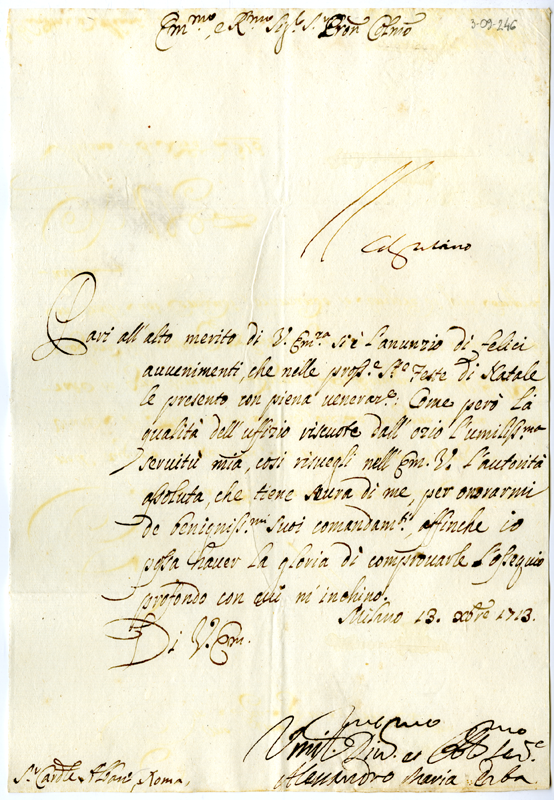 Em.mo, e R.mo Sig.r S.r P̃ron Colmo
3-09-246
Pari all'alto merito di V. Em.za si è l'anunzio di felici
avvenimenti, che nelle pross.e S.te Feste di Natale
le presento con piena venerar.e: Come però la
qualità dell'uffizio riscuote dall'ozio l'umiliss.ma
servitù mia, così risvegli nell'Em. V. l'autorità
assoluta, che tiene sovra di me, per onorarmi
de benigniss.mi suoi comandam.ti, affinche io
possa haver la gloria di comprovarle l'ossequio
profondo con cui m'inchino.
Milano 13. xbre 1713.
Di V. Em.
Umil.mo Div.mo et Obl.mo Ser.e
S.r Card.le Alban. Roma.
Alessandro Maria Erba